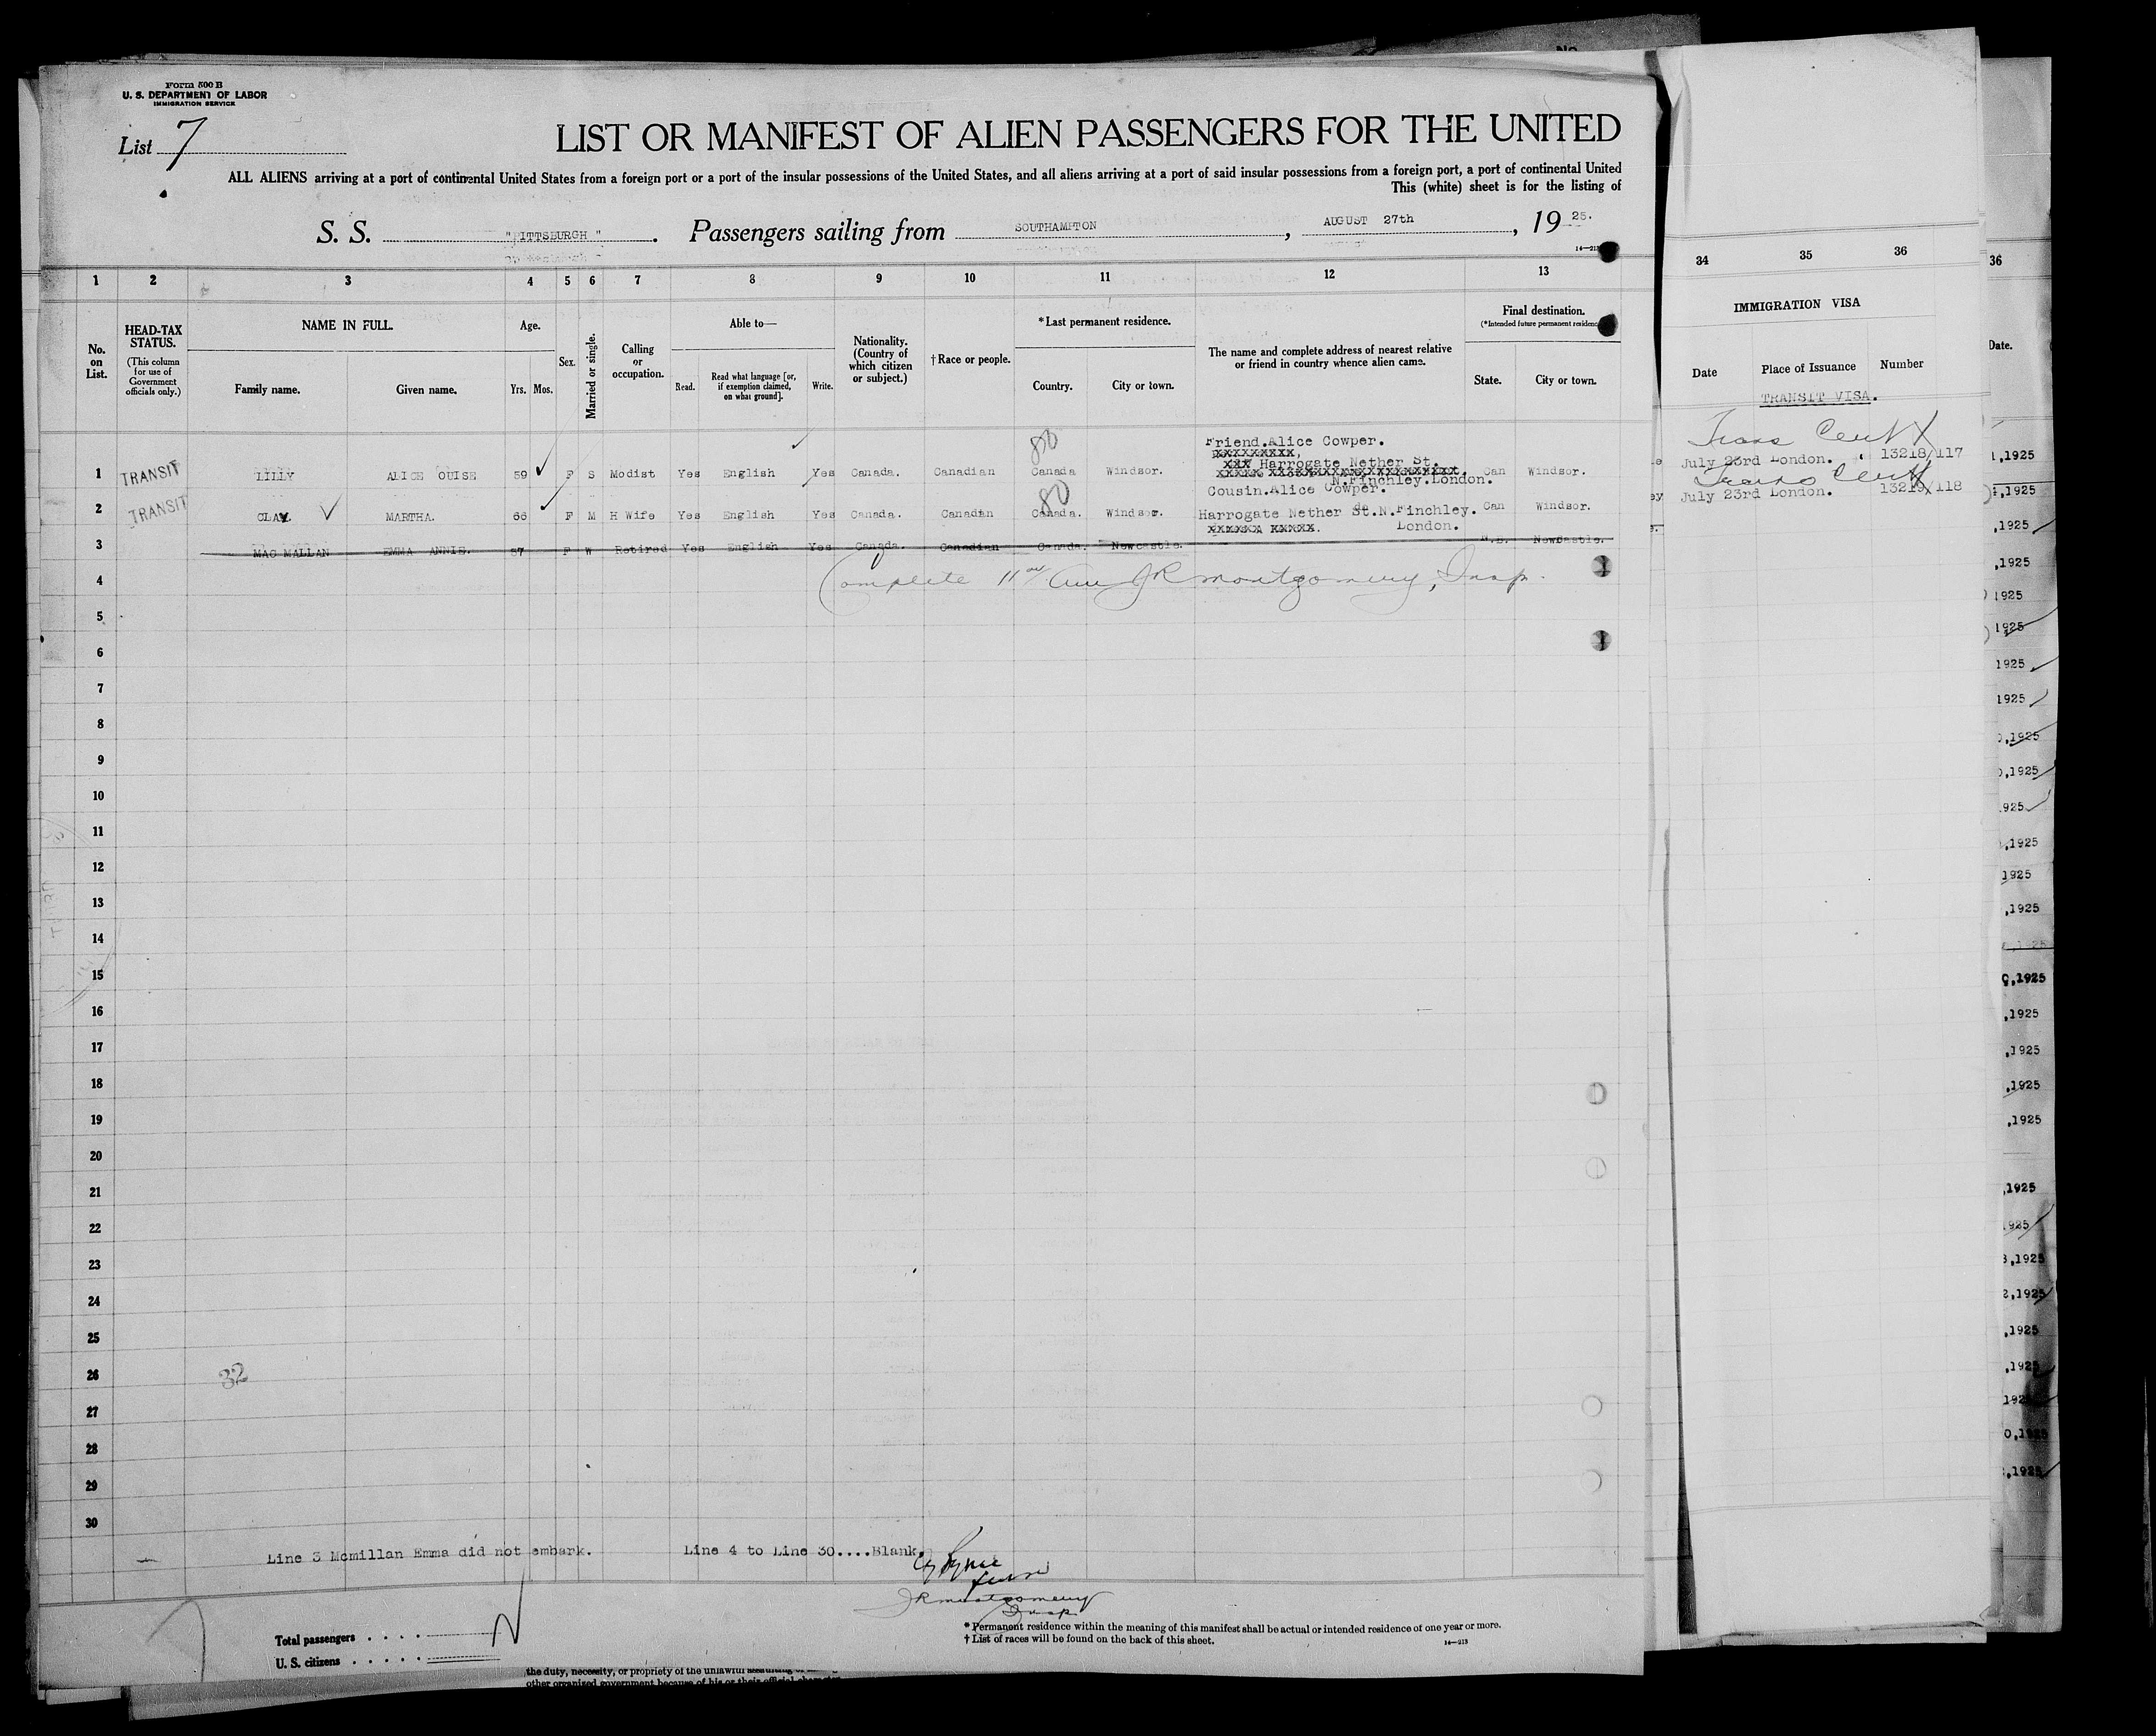 Form 500 B
U. S. DEPARTMENT OF LABOR
IMMIGRATION SERVICE
List 7
LIST OR MANIFEST OF ALIEN PASSENGERS FOR THE UNITED
ALL ALIENS arriving at a port of continental United States from a foreign port or a port of the insular possessions of the United States, and all aliens arriving at a port of said insular possessions from a foreign port, a port of continental United
This (white) sheet is for the listing of
S. S. "PITTSBURGH". Passengers sailing from SOUTHAMPTON, AUGUST 27th, 19 25.
1 2 3 4 5 6 7 8 9 10 11 12 13
No. on List.
HEAD-TAX STATUS.
(This column for use of Government officials only.)
NAME IN FULL.
Family name. Given name.
Age.
Yrs. Mos.
Sex.
Married or single.
Calling or occupation.
Able to—
Read. Read what language [or, if exemption claimed, on what ground]. Write.
Nationality. (Country of which citizen or subject.)
† Race or people.
* Last permanent residence.
Country. City or town.
The name and complete address of nearest relative or friend in country whence alien came.
Final destination.
(*Intended future permanent residence
State. City or town.
34 35 36
IMMIGRATION VISA
Date Place of Issuance Number
TRANSIT VISA.
80
Friend.Alice Cowper.
1 TRANSIT LILLY ALICE OUISE 59 F S Modist Yes English Yes Canada. Canadian Canada Windsor. Harrogate Nether St. N.Finchley.London. Can Windsor.
July 23rd London. 13218/117
80
2 TRANSIT CLAY. MARTHA. 66 F M H Wife Yes English Yes Canada. Canadian Canada. Windsor. Cousin.Alice Cowper. Harrogate Nether St.N.Finchley. London. Can Windsor.
July 23rd London. 13219/118
3 MAC MALLAN EMMA ANNIE. 57 F W Retired Yes English Yes Canada. Canadian Canada. Newcastle. N.B. Newcastle.
4 Complete JR Montgomery, Insp.
5
6
7
8
9
10
11
12
13
14
15
16
17
18
19
20
21
22
23
24
25
26 32
27
28
29
30
Line 3 Mcmillan Emma did not embark. Line 4 to Line 30....Blank.
JR Montgomery
Insp.
Total passengers
U. S. citizens
* Permanent residence within the meaning of this manifest shall be actual or intended residence of one year or more.
† List of races will be found on the back of this sheet.
14—213
the duty, necessity, or propriety of the unlawful
36
Date.